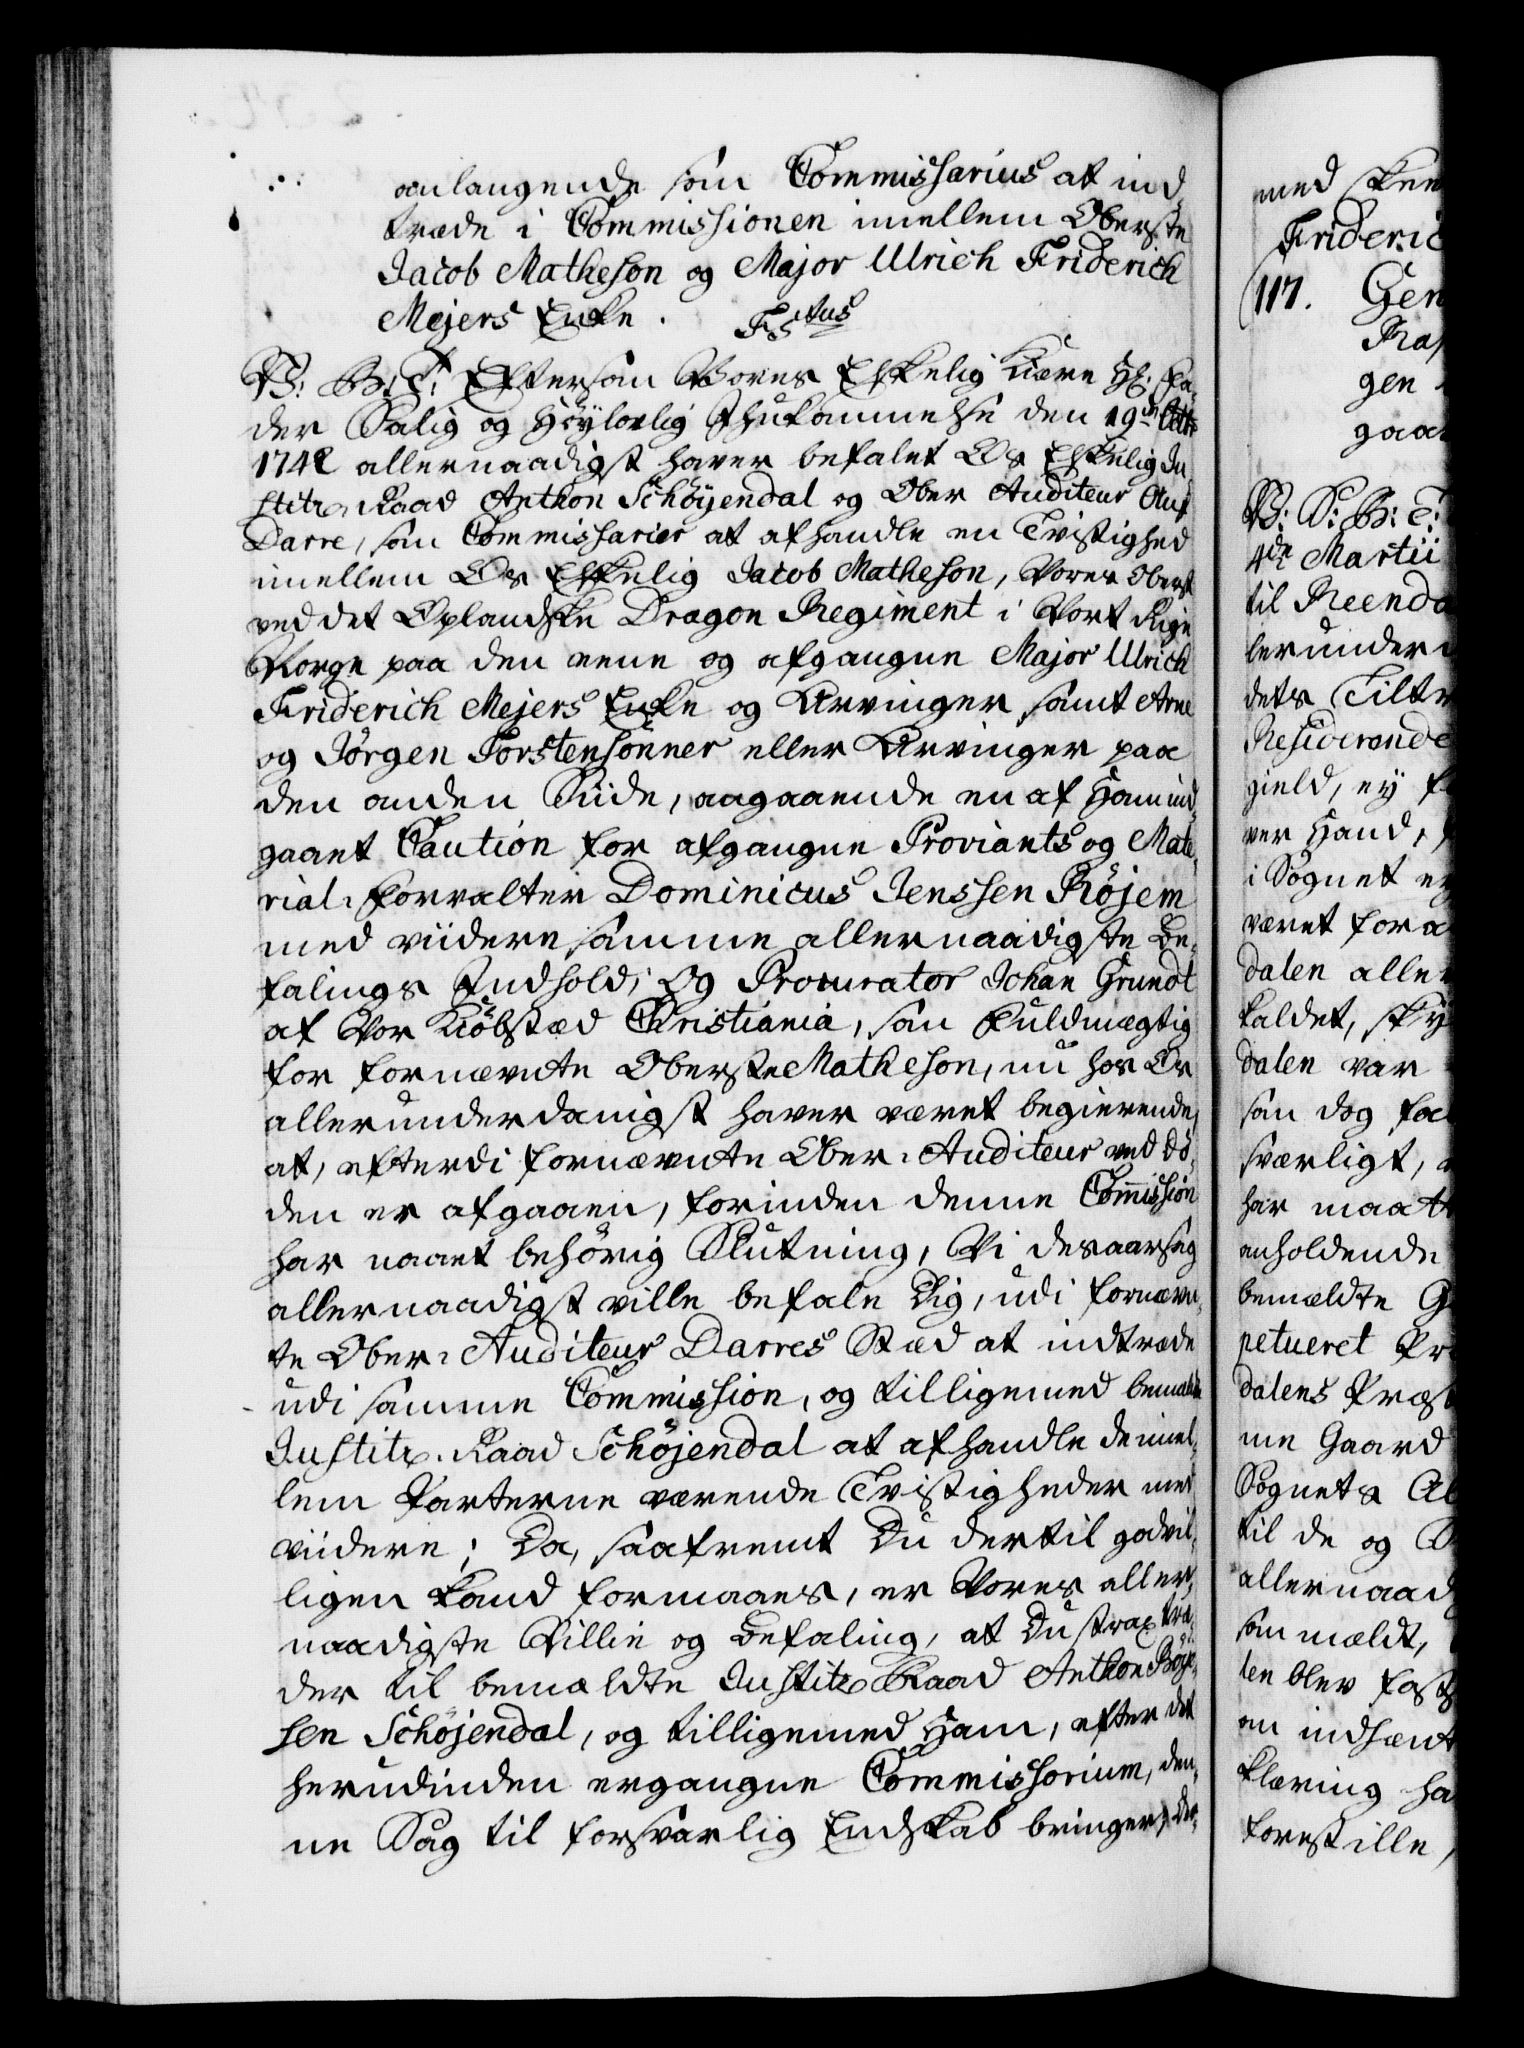 anlangende som Commissarius at ind-
træde i Commissionen imellem Oberste
Jacob Matheson og Major Ulrich Friderich
Mejers Enke. FStus
V: G: T: Eftersom Vores Elskelig Kiære Hr: Fa-
der Salig og Høylovlig Ihukommelse den 19de Octbr
1742 allernaadigst haver befalet Os Elskelig Ju-
stitz-Raad Anthon Schöyendal og Ober Auditeur Oluf
Darre, som Commissarier at afhandle en Tvistighed
imellem Os Elskelig Jacob Matheson, Vores Oberst
ved det Oplandske Dragon Regiment i Vort Rige
Norge paa den eene og afgangne Major Ulrich
Friderich Mejers Enke og Arvinger samt Arne
og Jörgen Torstensönner eller Arvinger paa
den anden Siide, angaaende en af Ham ind-
gaaet Caution for afgangne Proviants og Mate-
rial-Forvalter Dominicus Jenssen Röjem
med viidere samme allernaadigste Be-
falings Indhold; Og Procurator Johan Grundt
af Vor Kiöbstæd Christiania, som Fuldmægtig
for fornævnte Oberste Matheson, nu hos Os
allerunderdanigst haver været begierende,
at, efterdi fornævnte Ober-Auditeur ved dö-
den er afgaaen, forinden denne Commission
har naaet behörig Slutning, Vi desaarsag
allernaadigst ville befale Dig, udi fornævn-
te Ober-Auditeur Darres Stæd at indtræde
udi samme Commission, og tilligemed bemeldte
Justitz-Raad Schöjendal at afhandle de imel-
lem Parterne værende Tvistigheder med
viidere; Da, saafremt Du dertil godvil-
ligen kand formaaes, er Vores aller-
naadigste Villie og Befaling, at Du strax træ-
der til bemældte Justitz Raad Anthon Böje-
sen Schöjendal, og tilligemed Ham, efter det
herudinden ergangne Commissorium, den-
ne Sag til forsvarlig Endskab bringer, der-
med sken
Frideric
117. Gen
Ras
gen
gaa
V: S: G: T:
4de Martii
til Reenda
lerundern
dets Tiltr
Residerende
gield, ey f
ver Haand,
i Sognet er
været for a
dalen aller
kaldet, sky
dalen var
som dog fa
sværligt,
har maatt
anholdende
bemældte G
petueret Pr
dalens Præs
me Gaard
Sognets Al
til de og
allernaad
som mældt,
len blev fast
om indhænt
klæring ha
forestille,